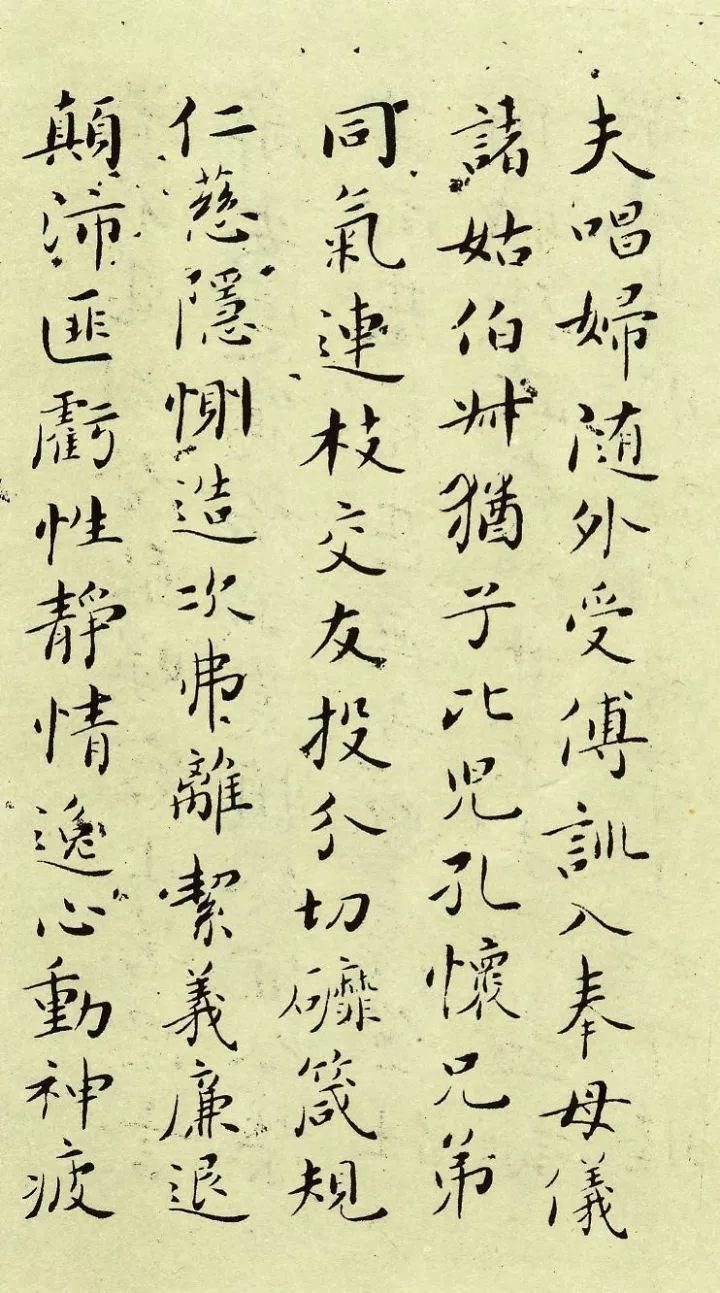 夫唱婦随外受傅訓入奉母儀
諸姑伯叔猶子比児孔懷兄弟
同氣連枝交友投分切磨箴規
仁慈隱惻造次弗離絜義廉退
顛沛匪虧性靜情逸心動神疲